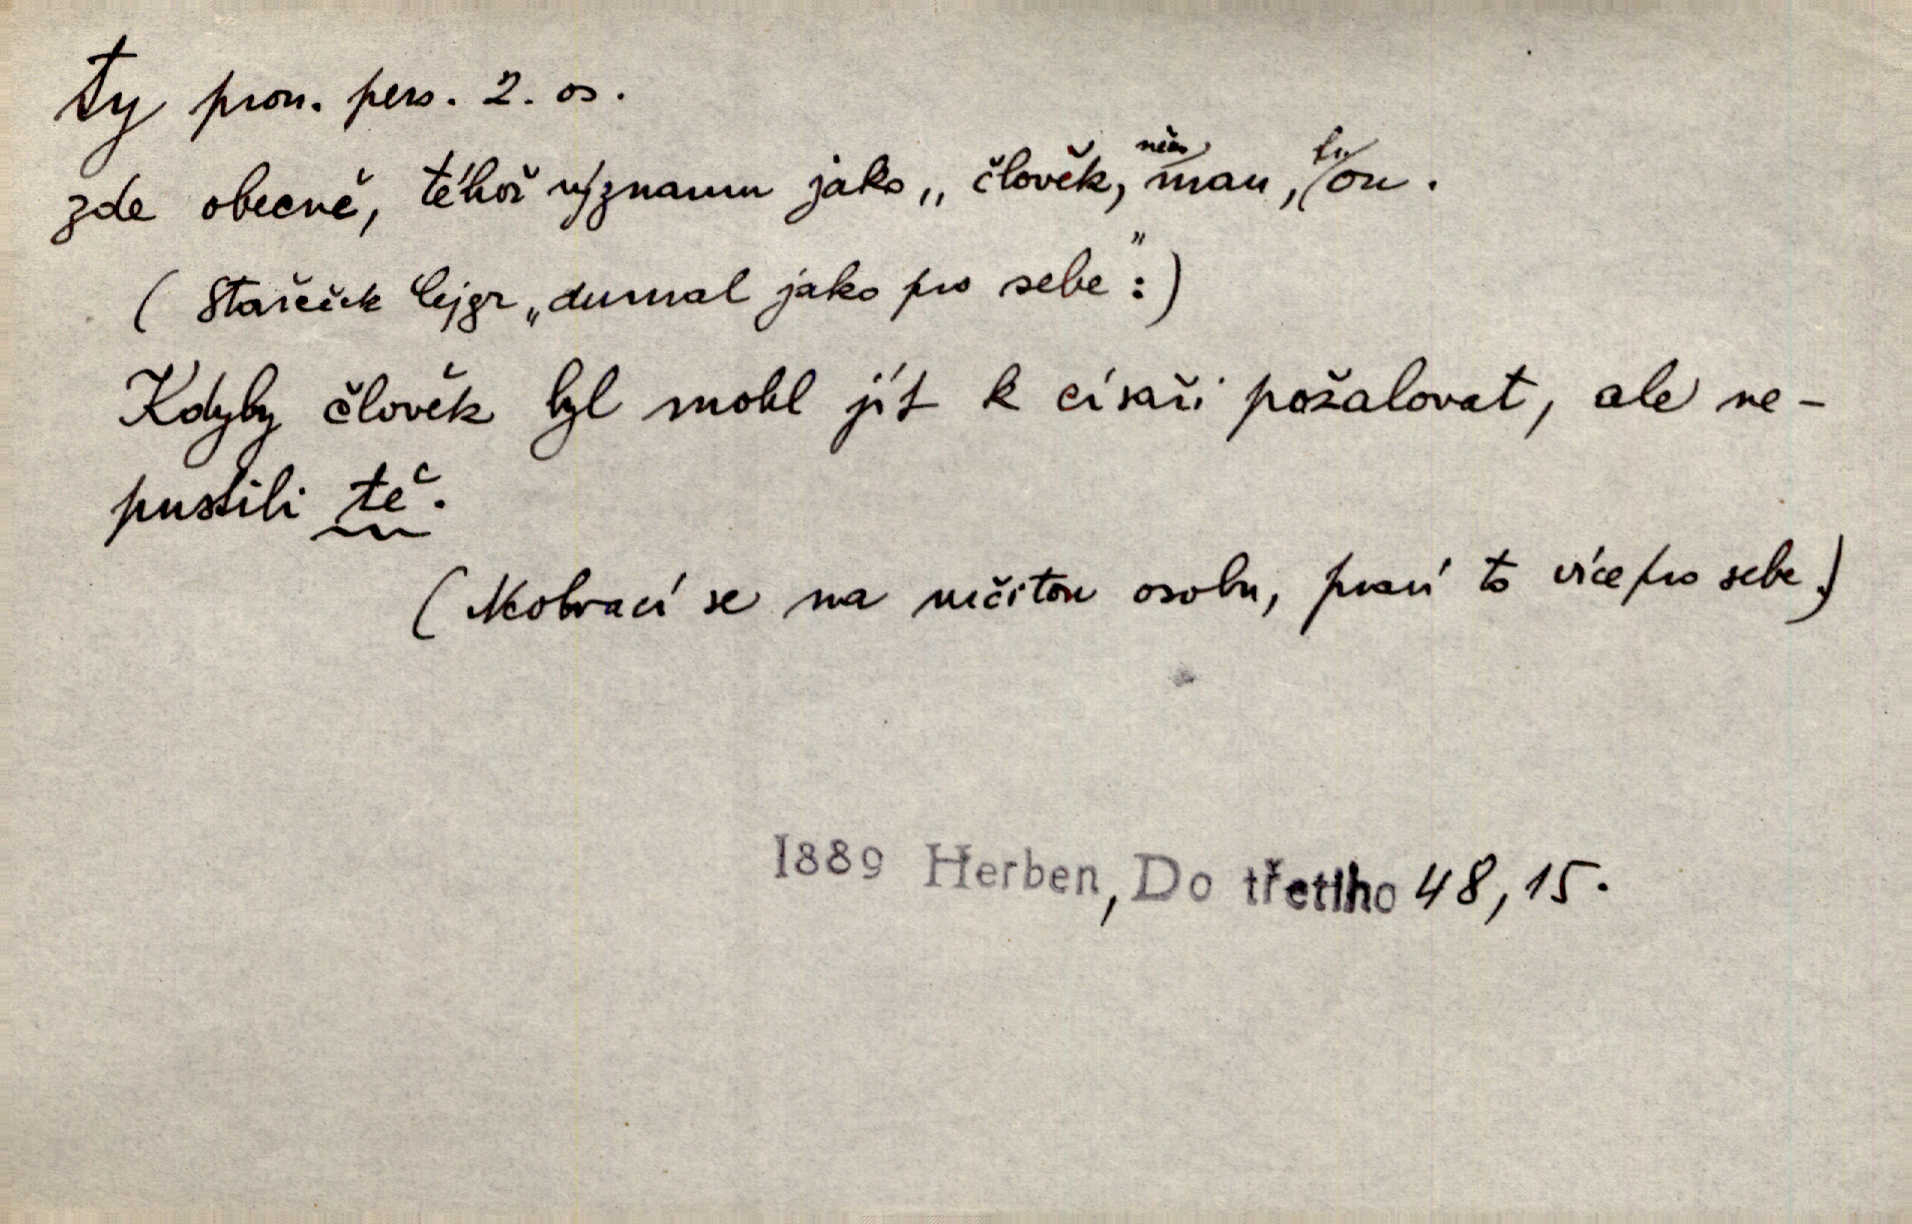 ty pron. pers. 2. os.
zde obecně, téhož významu jako „člověk, něm. man, fr. on.
(Stařeček Cejgr „dumal jako pro sebe":)
Kdyby člověk byl mohl jít k císaři požalovat, ale ne-
pustili tě.
(Neobrací se na určitou osobu, praví to více pro sebe.)
1889 Herben, Do třetího 48, 15.